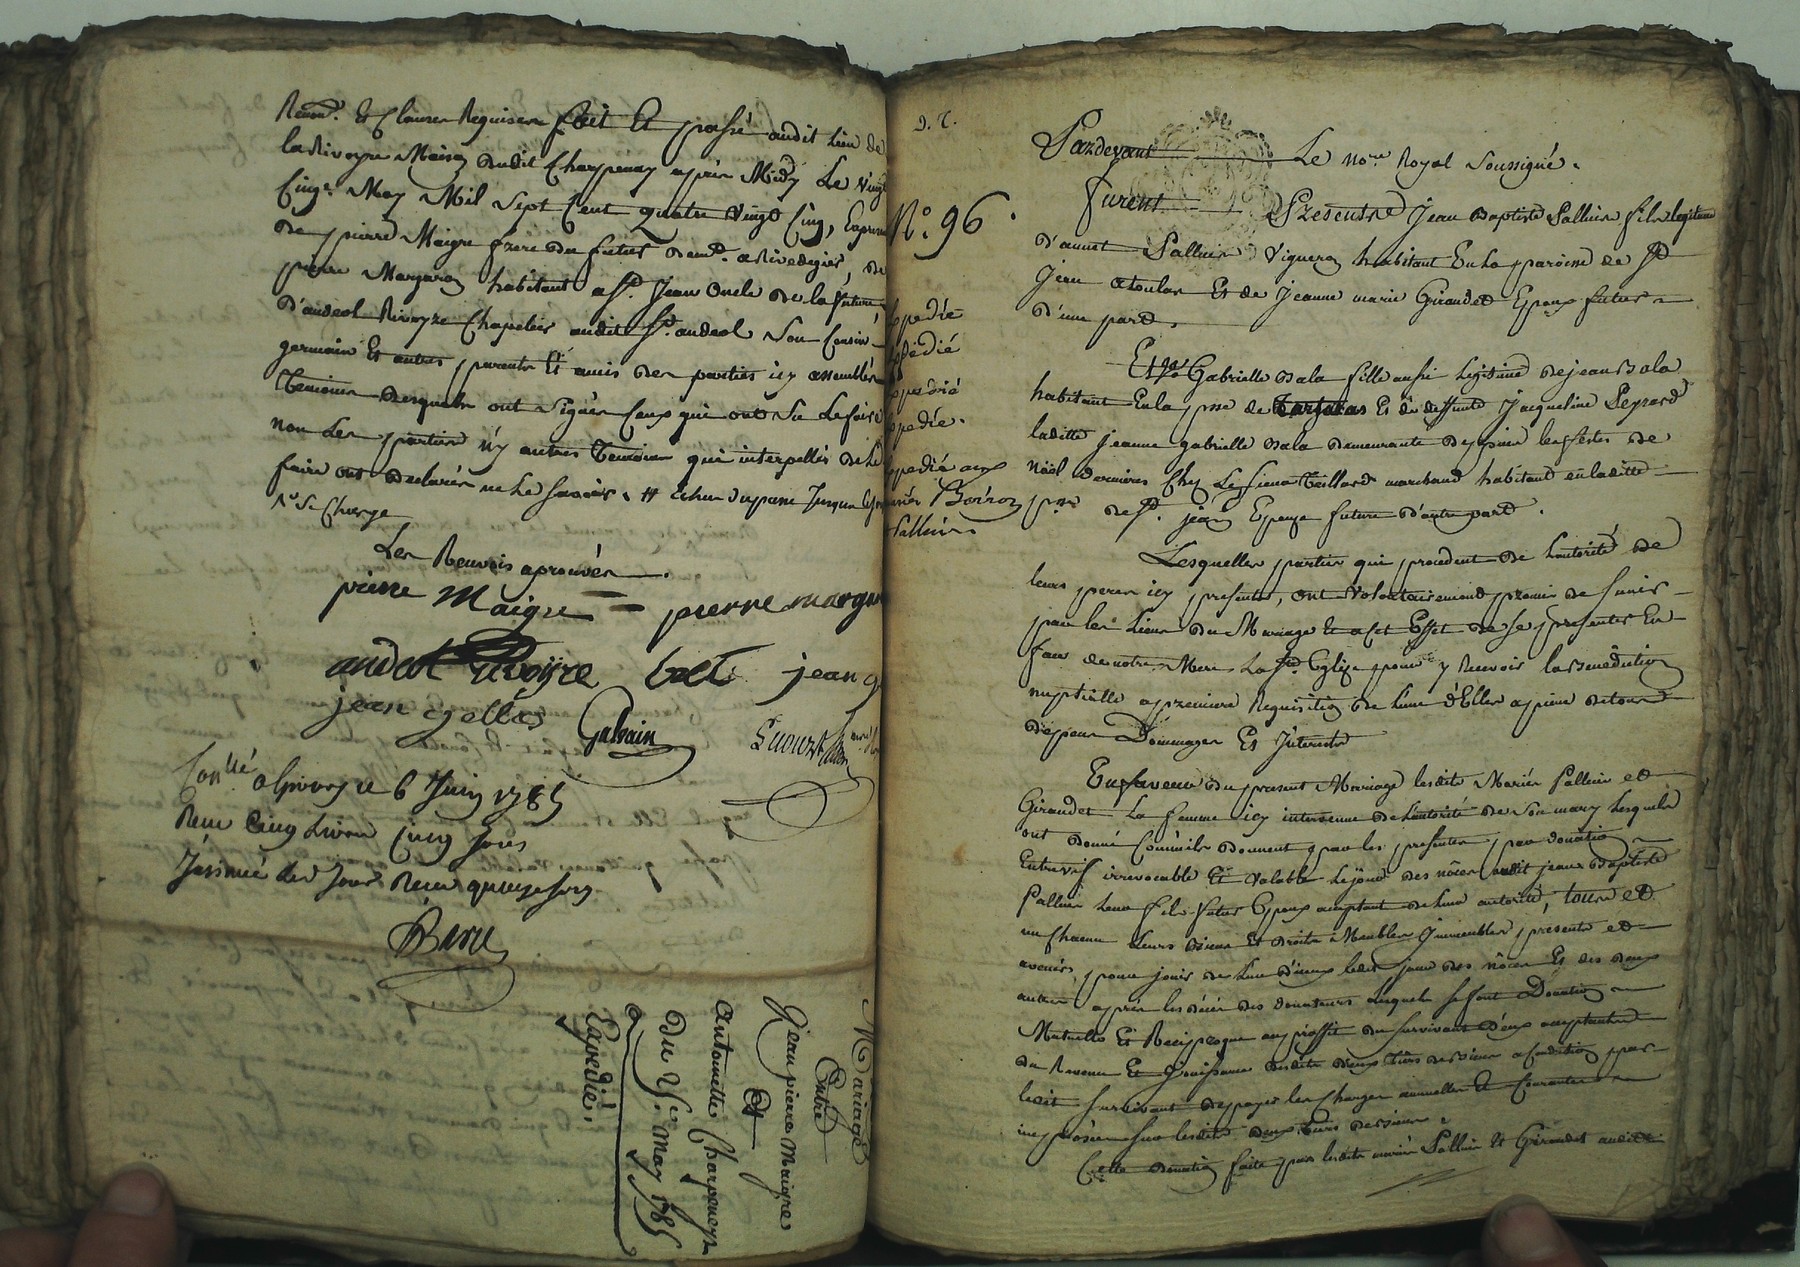 Renon. Et Clauses Requises fait Et passé audit lieu de
la Rivoyre Maison dudit Charpenay après Midy Le vingt
Cinq.e May Mil Sept Cent quatre vingt Cinq, En presence
de pierre Maigre frere du futur dem.t a Rivedegier, de
pierre Margaron habitant a S.t Jean Oncle de la future,
d'andeol Rivoyre Chapelier audit S.t andeol Son Cousin
germain Et autres parents Et amis des parties icy assemblés
Temoins desquels ont Signés Ceux qui ont Su Le faire
non Les parties n'y autres Temoins qui interpellés de Le
faire ont declarés ne Le Savoir
Les Renvois aprouvés
pierre Maigre = pierre margaron
andeol Rivoyre jean
jean
Galvain
Con.llé a Givors Le 6 Juin 1785
Reçu Cinq Livres Cinq sous
Insinué led. Jour Reçu quinze sous
Mariage
Entre
Jean pierre Maigre
Et
Antoinette Charpeney
Du 25.e may 1785
Expedié.
N.o 96.
Expedié
Expedié
Expedié
Expedié.
Expedié aux
mariés Boiron
Palluis
Pardevant Le No.re Royal Soussigné.
Furent Presents Jean Baptiste Palluis fils legitime
d'annet Palluis Vigneron habitant En La paroisse de S.t
Jean a toulas Et de Jeanne marie Giraudet Epoux futur
d'une part,
Et Gabrielle Bala fille aussi Legitime de jean Bala
habitant En la p.sse de Tartaras Et de deffunte Jacqueline Peyrard
laditte jeanne gabrielle Bala demeurante depuis les fêtes de
Noël dernieres Chez Le Sieur Teillard marchand habitant en laditte
p.sse de S.t jean Epouse future d'autre part.
Lesquelles parties qui procedent de L'autorité de
leurs peres icy presents, ont volontairement promis de S'unir
par les Liens du Mariage Et a cet Effet de Se presenter En
face de notre Mere La S.te Eglise pour y Recevoir la Benediction
nuptialle a premiere Requisition de L'une d'Elles a peine de tous
depens Dommages Et Interests
En faveur du present Mariage lesdits Mariés Palluis et
Giraudet La femme icy intervenue de L'autorité de Son mary Lesquels
ont donné Comm'ils donnent par les presentes par donation
Entrevif irrevocable Et valable Le jour des nôces audit jean Baptiste
Palluis Leur fils futur Epoux acceptant de Leur autorité, tous et
un chacun Leurs Biens Et droits Meubles Immeubles presents et
avenir, pour jouir de L'un d'iceux Ledit jour des nôces Et des deux
autres après les décès des donateurs desquels Se font Donation
Mutuelle Et Reciproque au proffit du Survivant d'eux acceptants
du Revenu Et Jouissance desdits deux tiers des biens a Condition par
ledit Survivant de payer les Charges annuelles Et Courantes
imposées Sur lesdits deux tiers des biens.
Cette donation faite par lesdits mariés Palluis Et Giraudet audit